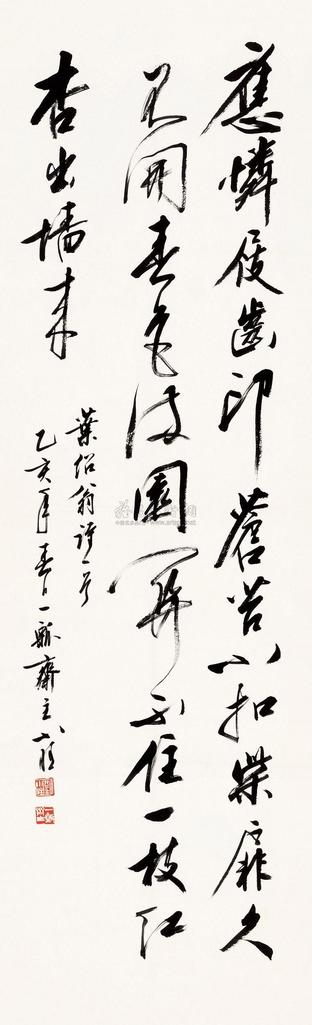 應憐屐齒印蒼苔小扣柴扉久
不開春色滿園關不住一枝紅
杏出墻來
葉紹翁詩一首
乙亥年春日一瓢齋主